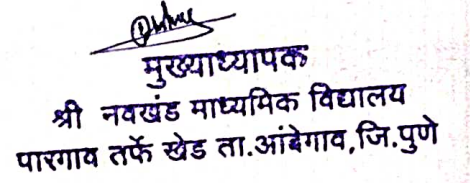 मुख्याध्यापक
श्री नवखंड माध्यमिक विद्यालय
पारगाव तर्फे खेड ता.आंबेगाव,जि.पुणे